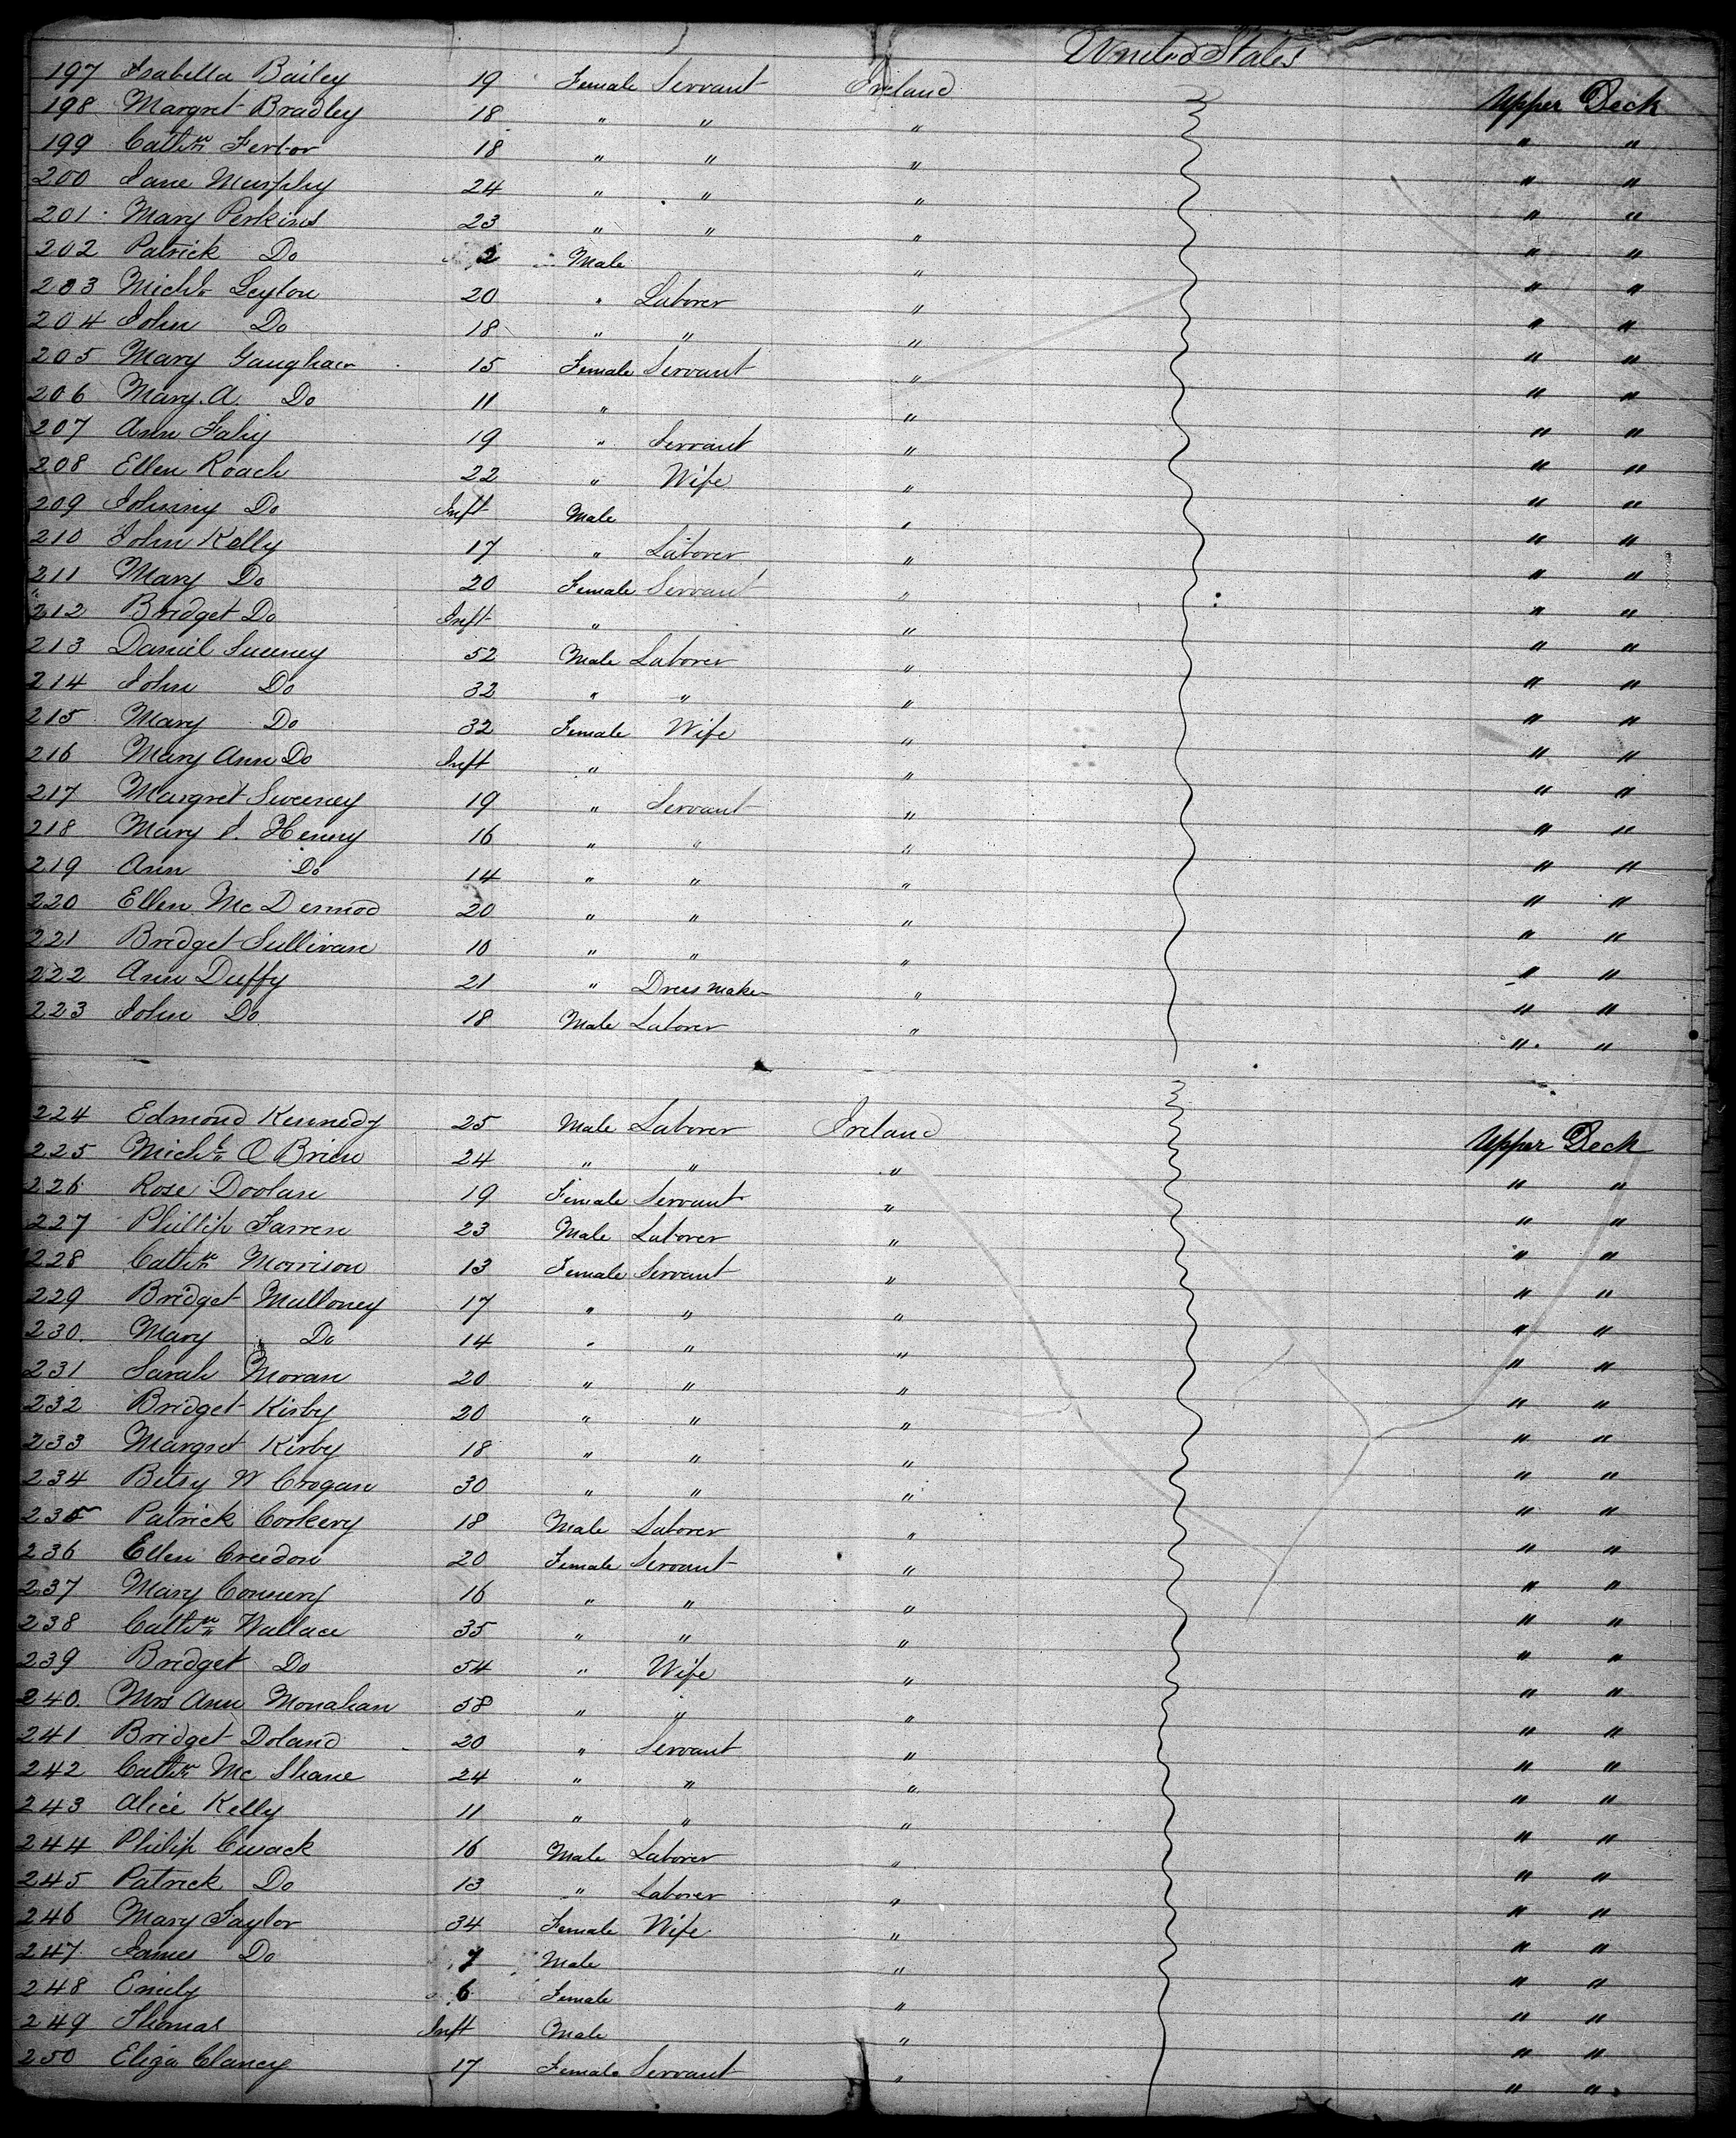 United States
197 Isabella Bailey 19 Female Servant Ireland Upper Deck
198 Margret Bradley 18 " " " " "
199 Cathn 18 " " " " "
200 Jane Murphy 24 " " " " "
201 Mary Perkins 23 " " " " "
202 Patrick Do 2 Male " " "
203 Michl Leyton 20 " Laborer " " "
204 John Do 18 " " " " "
205 Mary Gaughan 15 Female Servant " " "
206 Mary A. Do 11 " " " "
207 Ann Fahy 19 " Servant " " "
208 Ellen Roach 22 " Wife " " "
209 Johnny Do Inft Male " " "
210 John Kelly 17 " Laborer " " "
211 Mary Do 20 Female Servant " " "
212 Bridget Do Inft " " " "
213 Daniel Sweeney 52 Male Laborer " " "
214 John Do 32 " " " " "
215 Mary Do 32 Female Wife " " "
216 Mary Ann Do Inft " " " "
217 Margret Sweeney 19 " Servant " " "
218 Mary J. Henry 16 " " " " "
219 Ann Do 14 " " " " "
220 Ellen McDermod 20 " " " " "
221 Bridget Sullivan 10 " " " " "
222 Ann Duffy 21 " Dressmaker " " "
223 John Do 18 Male Laborer " " "
224 Edmond Kennedy 25 Male Laborer Ireland Upper Deck
225 Michl O Brien 24 " " " " "
226 Rose Doolan 19 Female Servant " " "
227 Phillip Farren 23 Male Laborer " " "
228 Cathn Morrison 13 Female Servant " " "
229 Bridget Mulloney 17 " " " " "
230. Mary Do 14 " " " " "
231 Sarah Moran 20 " " " " "
232 Bridget Kirby 20 " " " " "
233 Margret Kirby 18 " " " " "
234 Betsy W Crogan 30 " " " " "
235 Patrick Corkery 18 Male Laborer " " "
236 Ellen Creedon 20 Female Servant " " "
237 Mary Connery 16 " " " " "
238 Cathn Wallace 35 " " " " "
239 Bridget Do 54 " Wife " " "
240. Mrs Ann Monahan 58 " " " " "
241 Bridget Doland 20 " Servant " " "
242 Cathn Mc Shane 24 " " " " "
243 Alice Kelly 11 " " " " "
244 Philip Cusack 16 Male Laborer " " "
245 Patrick Do 13 " Laborer " " "
246 Mary Taylor 34 Female Wife " " "
247 James Do 7 Male " " "
248 Emily 6 Female " " "
249 Thomas Inft Male " " "
250 Eliza Clancy 17 Female Servant " " "